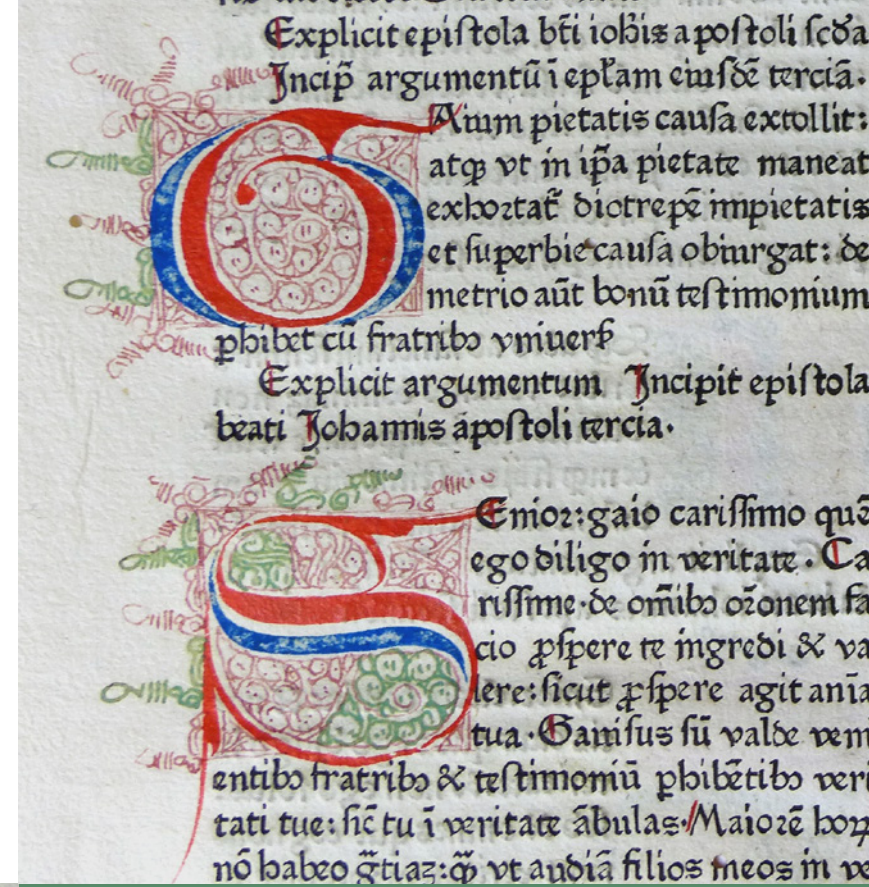 Explicit epiſtola bt̄i ioh̄is apoſtoli ſcd̄a
Incip̄ argumentū ī epl̄am eiuſdē terciā.
GAium pietatis cauſa extollit:
atqꝫ vt in ip̄a pietate maneat
exhortat᷑ diotrepē impietatis
et ſuperbie cauſa obiurgat: de
metrio aūt bonū teſtimonium
ꝑhibet cū fratribꝰ vniuerſ
Explicit argumentum Incipit epiſtola
beati Johannis apoſtoli tercia.
SEnior: gaio cariſſimo quē
ego diligo in veritate. Ca
riſſime. de om̄ibꝰ or̄onem fa
cio ꝓſpere te ingredi & va
lere: ſicut ꝓſpere agit anīa
tua. Gauiſus ſū valde veni
entibꝰ fratribꝰ & teſtimoniū ꝑhibētibꝰ veri
tati tue: ſic̄ tu ī veritate ābulas. Maiorē hoꝝ
nō habeo gr̄tiaꝫ: qͣꝫ vt audiā filios meos in ve